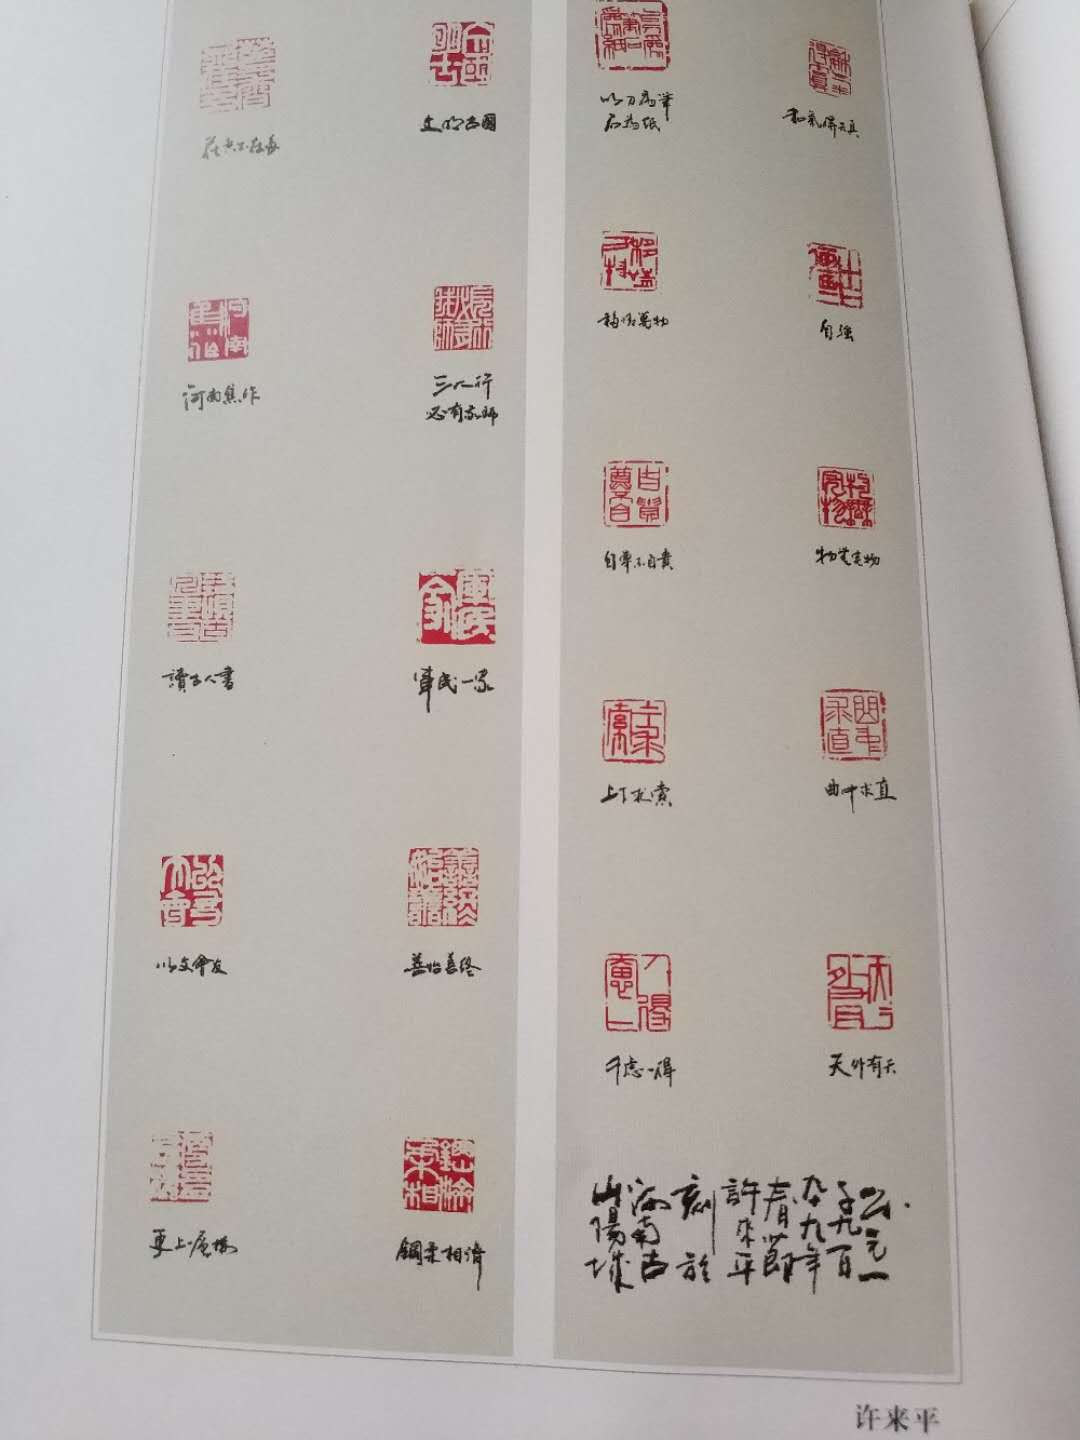 文明古國
以刀為筆
石為紙
和氣得天真
河南焦作
三人行
必有我師
移情萬物
自強
自尊不自貴
讀古人書
軍民一家
上下求索
曲中求直
以文會友
善始善終
千慮一得
天外有天
更上一層樓
鋼柔相濟
公元一
千九百
九十九年
春節
許來平
刻於
河南古
山陽城
许来平